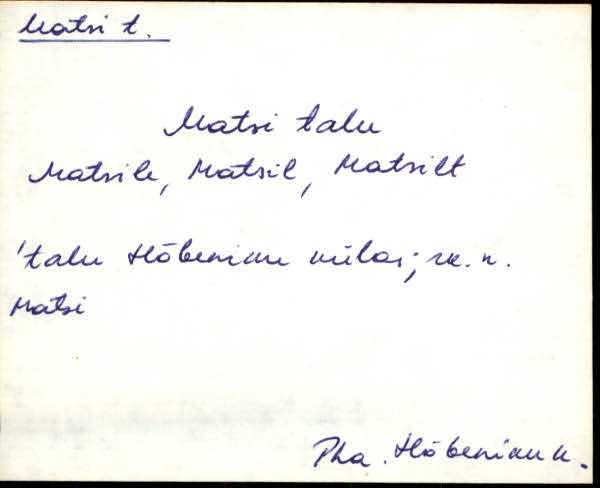 Matsi t.
Matsi talu
Matsile, Matsil, Matsilt
'talu Hõbeniku külas; rk. n.
Matsi
Pha. Hõbeniku k.